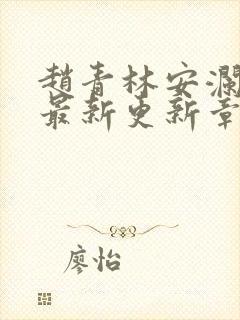 趙青林安瀾
最新更新章
廖怡